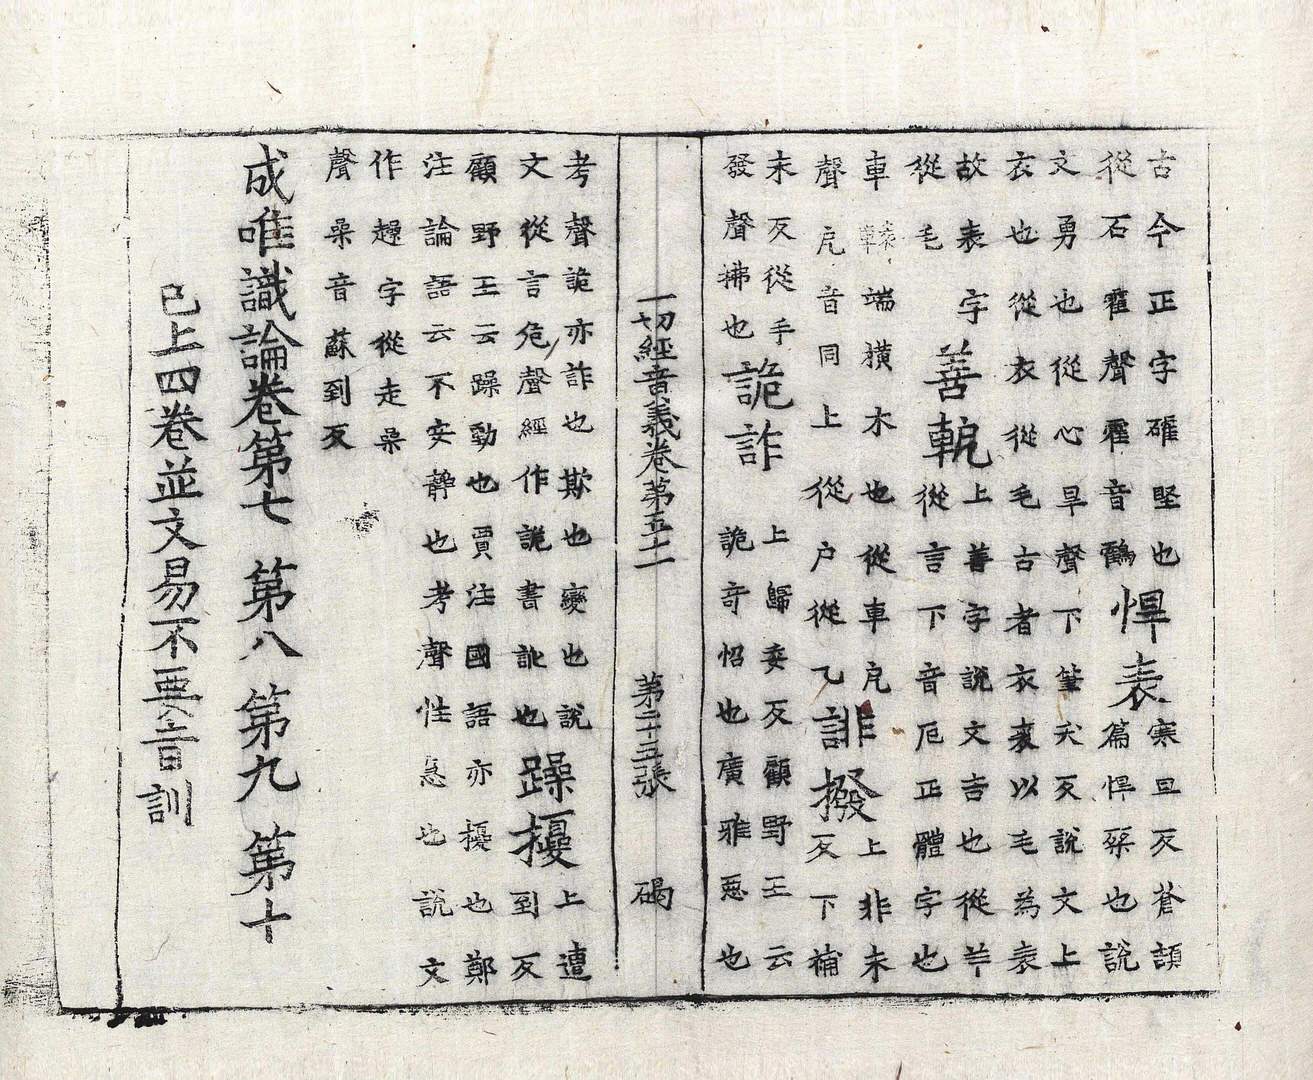 古今正字確堅也
從石隺聲隺音鶴
悍表
寒旦反蒼頡
篇悍桀也說
文勇也從心旱聲下筆夭反說文上
衣也從衣從毛古者衣裘以毛為表
故表字
從毛
善軶
上善字說文吉也從羊
從言下音厄正體字也
車轅端橫木也從車戹
聲戹音同上從户從乙
誹撥
上非未
反下補
末反從手
發聲拂也
詭詐
上歸委反顧野王云
詭奇恠也廣雅惡也
一切經音義卷第五十一 第二十五張 碣
考聲詭亦詐也欺也變也說
文從言危聲經作詭書訛也
躁擾
上遭
到反
顧野王云躁動也賈注國語亦擾也鄭
注論語云不安靜也考聲性急也說文
作趮字從走喿
聲喿音蘇到反
成唯識論卷第七 第八 第九 第十
已上四卷並文易不要音訓